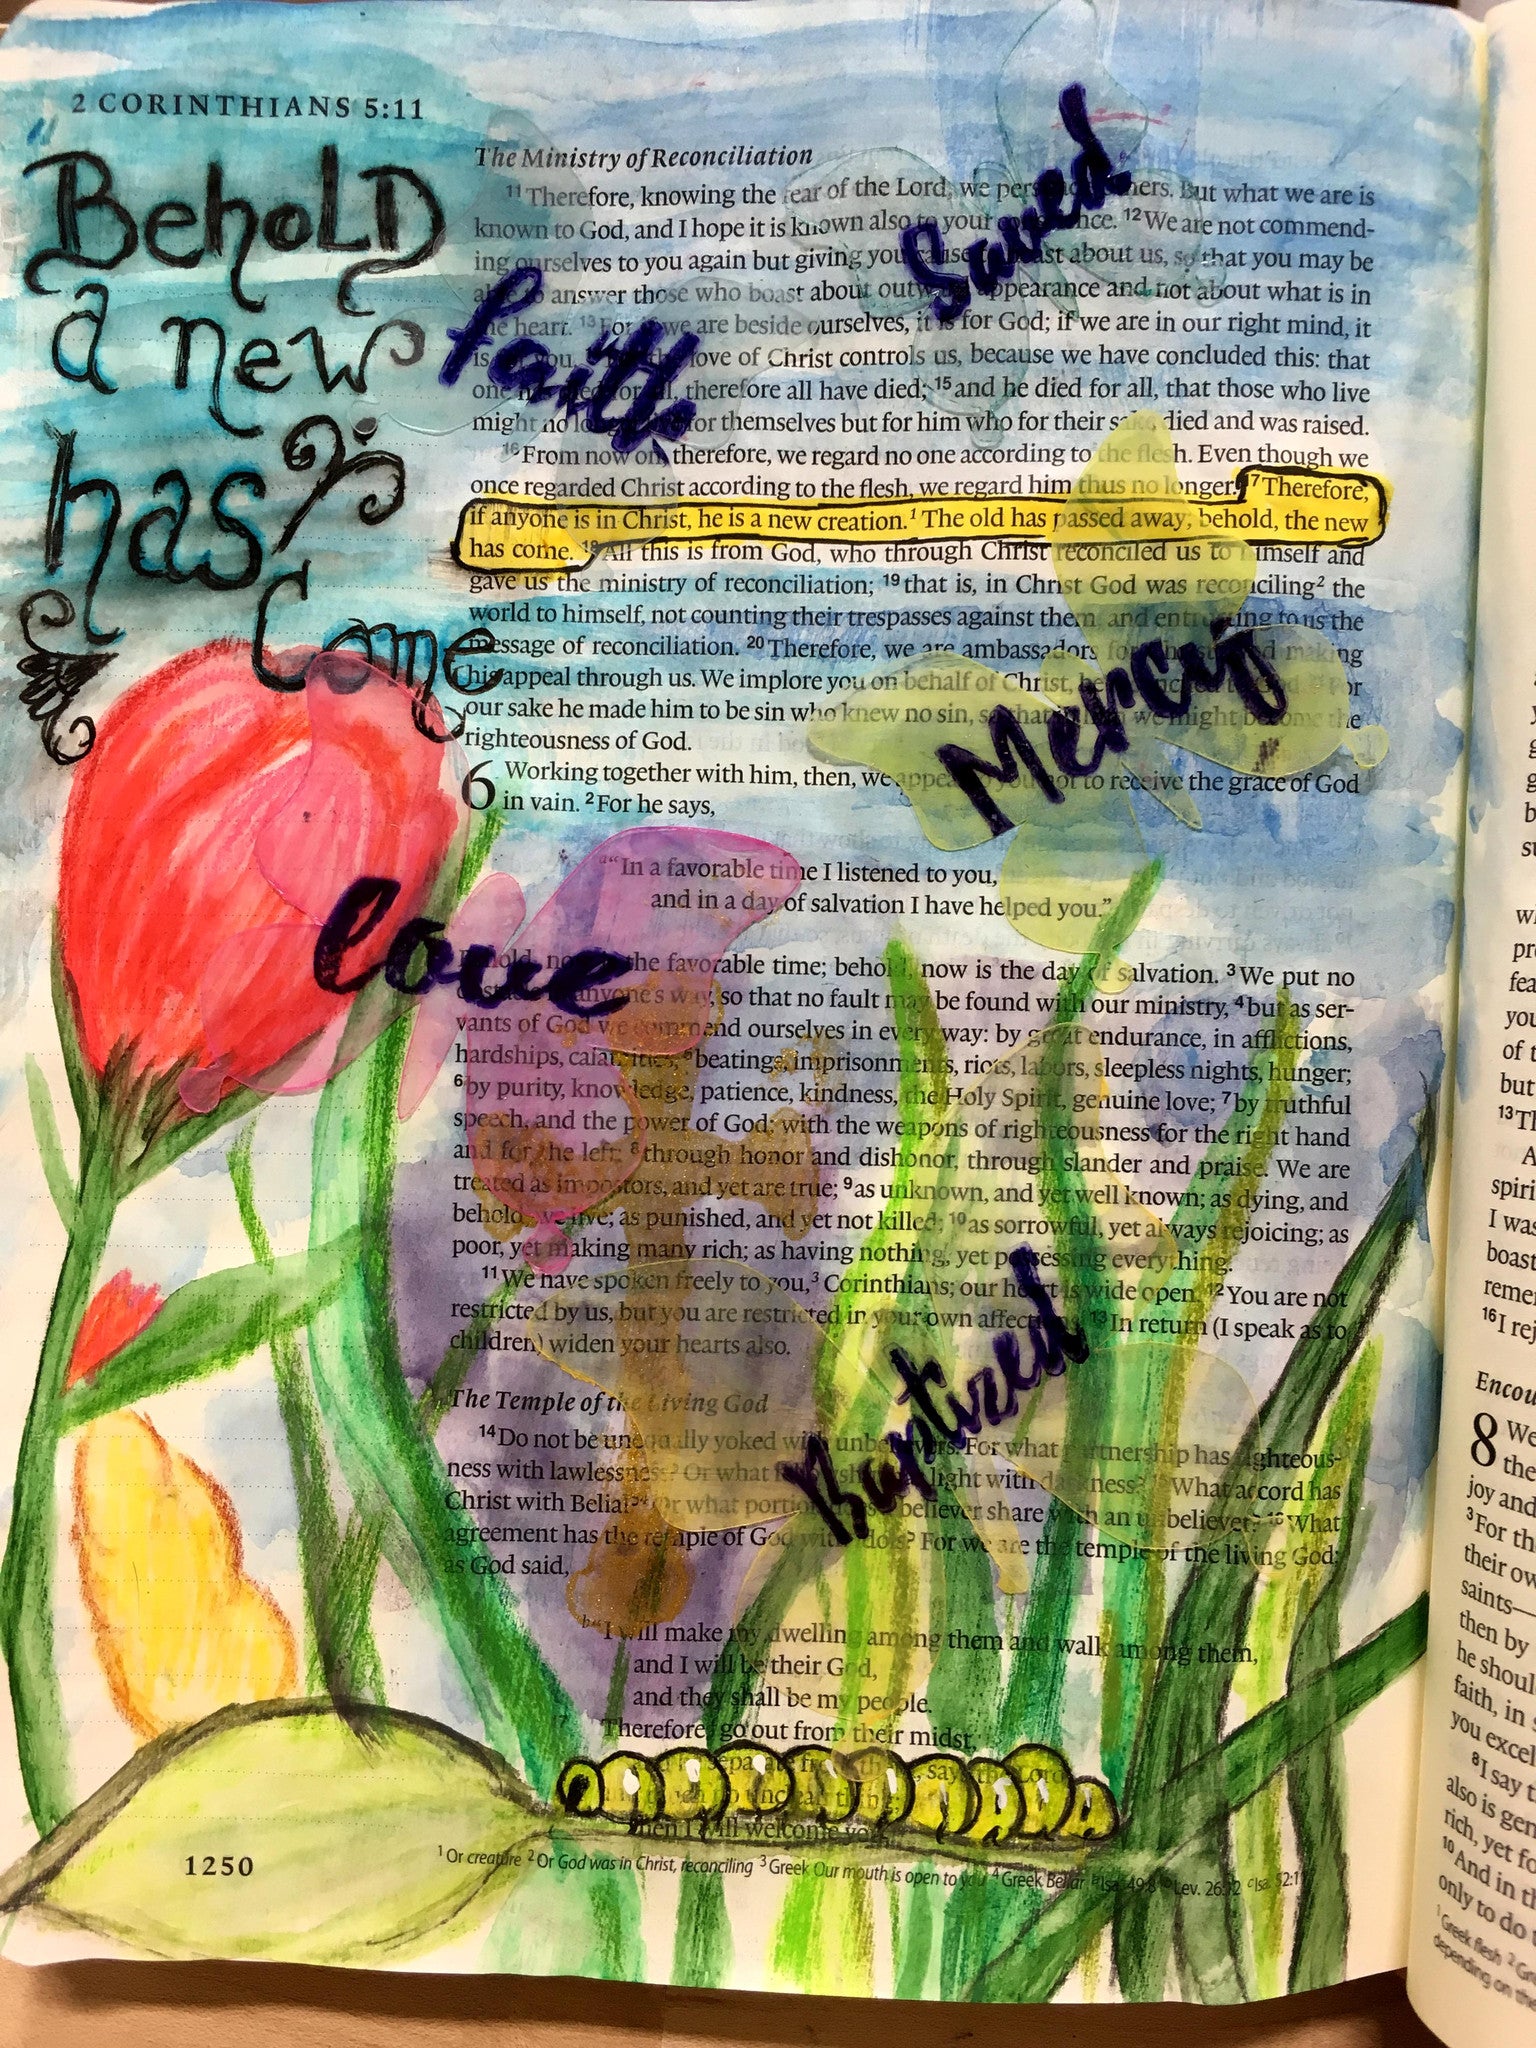 2 CORINTHIANS 5:11
BehoLD
a new
has
Come
faith
Saved
Mercy
love
Baptized
The Ministry of Reconciliation
11 Therefore, knowing the fear of the Lord, we others. But what we are is
known to God, and I hope it is known also to your conscience. 12 We are not commend-
ing ourselves to you again but giving you cause to boast about us, so that you may be
able to answer those who boast about outward appearance and not about what is in
the heart. 13 For if we are beside ourselves, it is for God; if we are in our right mind, it
is for you. the love of Christ controls us, because we have concluded this: that
one has died for all, therefore all have died; 15 and he died for all, that those who live
might no longer for themselves but for him who for their sake died and was raised.
16 From now on, therefore, we regard no one according to the flesh. Even though we
once regarded Christ according to the flesh, we regard him thus no longer. 7 Therefore,
if anyone is in Christ, he is a new creation.1 The old has passed away; behold, the new
has come. 18 All this is from God, who through Christ reconciled us to himself and
gave us the ministry of reconciliation; 19 that is, in Christ God was reconciling2 the
world to himself, not counting their trespasses against them, and entrusting to us the
message of reconciliation. 20 Therefore, we are ambassadors for making
his appeal through us. We implore you on behalf of Christ, be to God. For
our sake he made him to be sin who knew no sin, so that in him we might become the
righteousness of God.
6 Working together with him, then, we appeal to you not to receive the grace of God
in vain. 2 For he says,
a“In a favorable time I listened to you,
and in a day of salvation I have helped you.”
Behold, now the favorable time; behold, now is the day of salvation. 3 We put no
obstacle in anyone's way, so that no fault may be found with our ministry, 4 but as ser-
vants of God we commend ourselves in every way: by great endurance, in afflictions,
hardships, calamities, 5 beatings, imprisonments, riots, labors, sleepless nights, hunger;
6 by purity, knowledge, patience, kindness, the Holy Spirit, genuine love; 7 by truthful
speech, and the power of God; with the weapons of righteousness for the right hand
and for the left; 8 through honor and dishonor, through slander and praise. We are
treated as impostors, and yet are true; 9 as unknown, and yet well known; as dying, and
behold, we live; as punished, and yet not killed; 10 as sorrowful, yet always rejoicing; as
poor, yet making many rich; as having nothing, yet possessing everything.
11 We have spoken freely to you,3 Corinthians; our heart is wide open. 12 You are not
restricted by us, but you are restricted in your own affections. 13 In return (I speak as to
children) widen your hearts also.
The Temple of the Living God
14 Do not be unequally yoked with unbelievers. For what partnership has righteous-
ness with lawlessness? Or what fellowship light with darkness? What accord has
Christ with Belial?4 Or what portion believer share with an unbeliever? 16 What
agreement has the temple of God with idols? For we are the temple of the living God;
as God said,
b“I will make my dwelling among them and walk among them,
and I will be their God,
and they shall be my people.
Therefore go out from their midst,
and separate from them, says the Lord,
and touch no unclean thing;
then I will welcome you,
1 Or creature 2 Or God was in Christ, reconciling 3 Greek Our mouth is open to you 4 Greek Beliar Isa. 49:8 Lev. 26:12 c Isa. 52:11
1250
13 Th
spiri
I was
boast
reme
16 I rej
Encou
8 We
the
joy and
3 For th
their ow
saints—
then by
he shoul
faith, in s
you excel
8 I say t
also is gen
rich, yet fo
10 And in th
only to do t
1 Greek flesh 2 Gr
depending on the